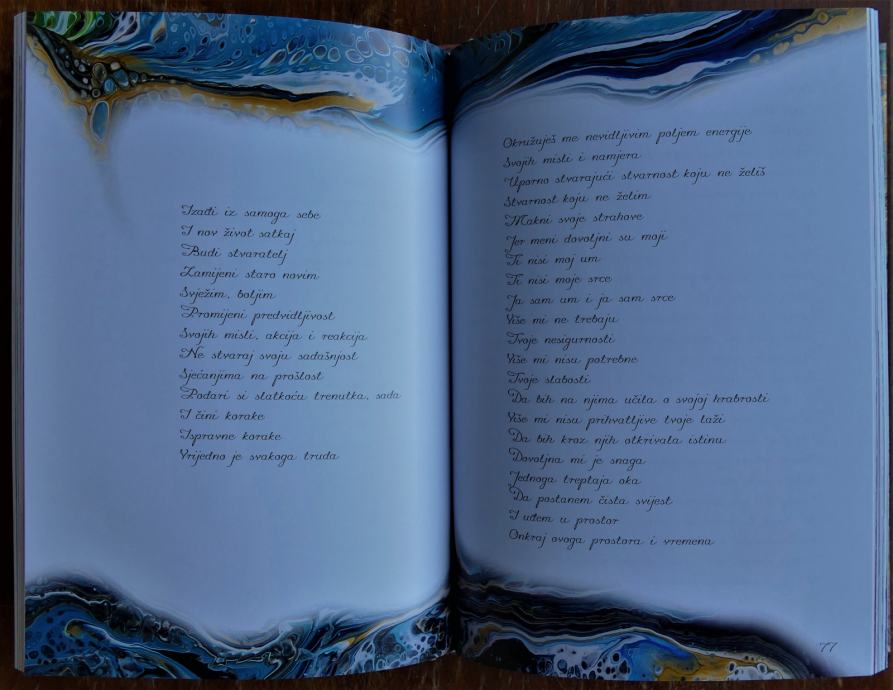 Izađi iz samoga sebe
I nov život satkaj
Budi stvaratelj
Zamijeni staro novim
Svježim, boljim
Promijeni predvidljivost
Svojih misli, akcija i reakcija
Ne stvaraj svoju sadašnjost
Sjećanjima na prošlost
Podari si slatkoću trenutka, sada
I čini korake
Ispravne korake
Vrijedno je svakoga truda
Okružuješ me nevidljivim poljem energije
Svojih misli i namjera
Uporno stvarajući stvarnost koju ne želiš
Stvarnost koju ne želim
Makni svoje strahove
Jer meni dovoljni su moji
Ti nisi moj um
Ti nisi moje srce
Ja sam um i ja sam srce
Više mi ne trebaju
Tvoje nesigurnosti
Više mi nisu potrebne
Tvoje slabosti
Da bih na njima učila o svojoj hrabrosti
Više mi nisu prihvatljive tvoje laži
Da bih kroz njih otkrivala istinu
Dovoljna mi je snaga
Jednoga treptaja oka
Da postanem čista svijest
I uđem u prostor
Onkraj ovoga prostora i vremena
77